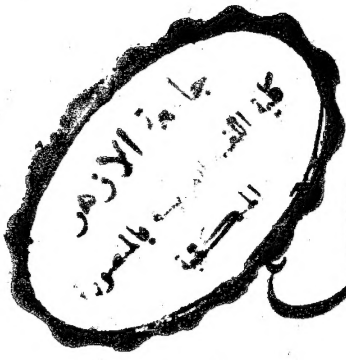 جامعة الازهر
كلية بالمنصورة
المكتبة